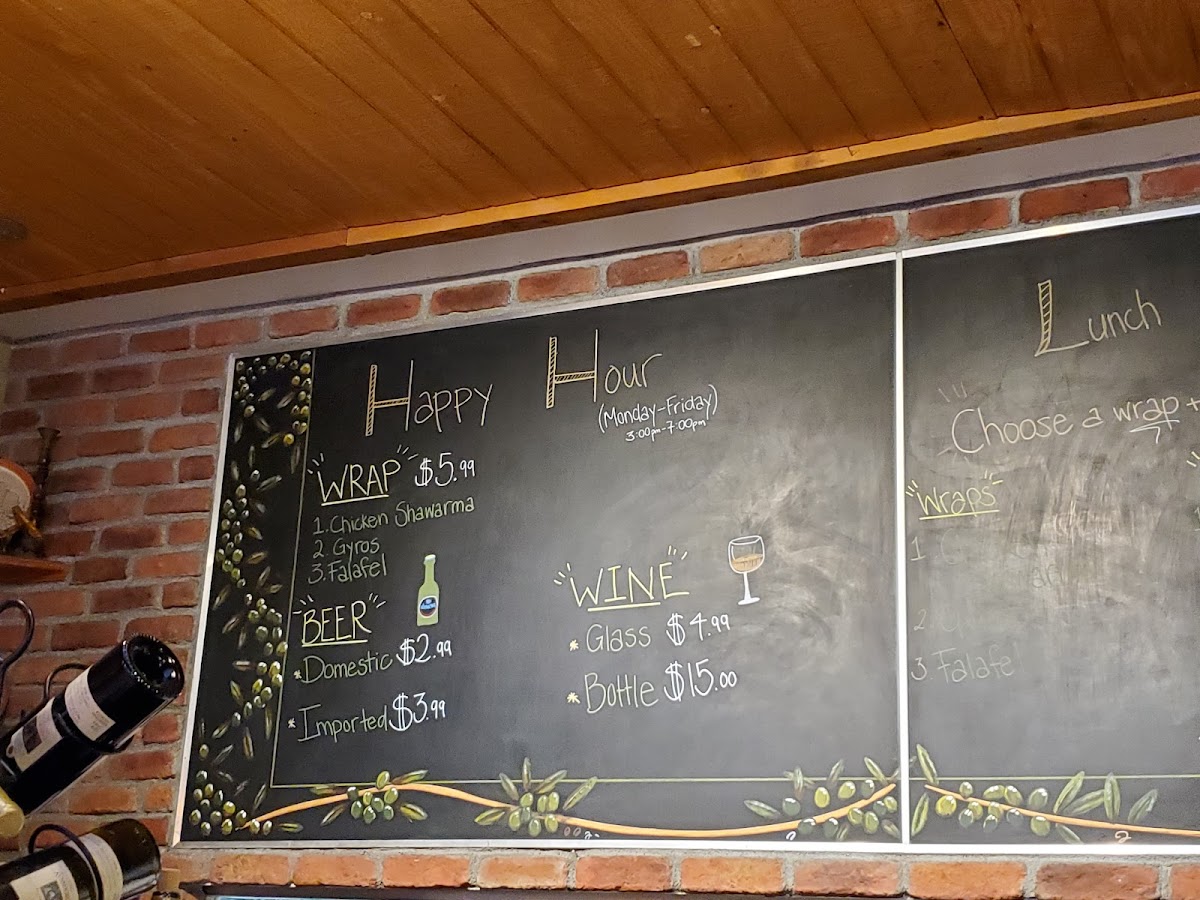 Happy Hour
(Monday-Friday)
3:00pm-7:00pm
WRAP $5.99
1. Chicken Shawarma
2. Gyros
3. Falafel
BEER
* Domestic $2.99
* Imported $3.99
WINE
* Glass $4.99
* Bottle $15.00
Lunch
Choose a wrap +
Wraps
1
2.
3. Falafel